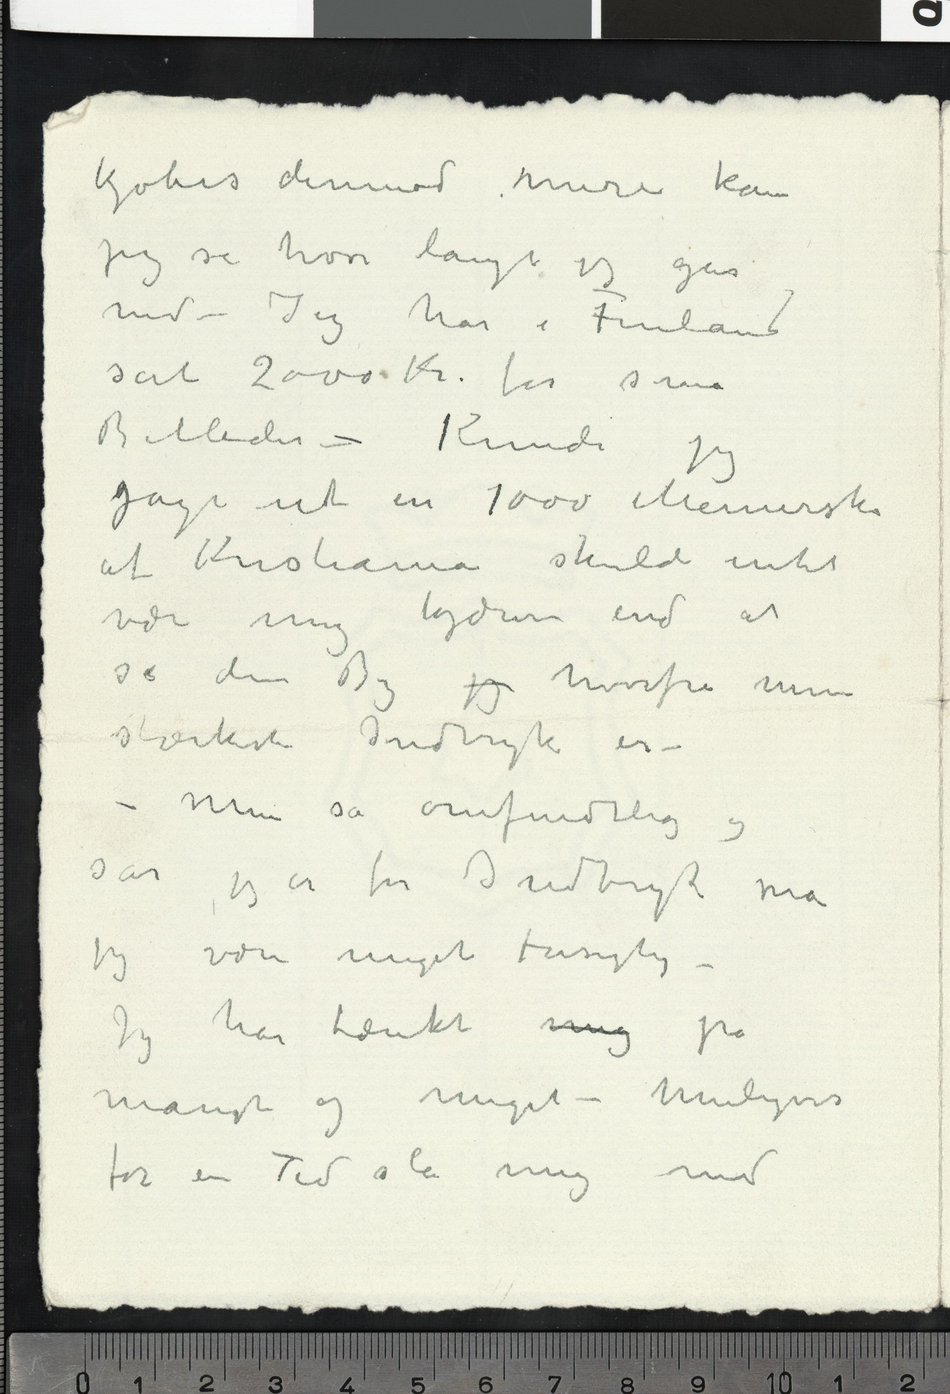 kjøbes derimod mere kan
jeg se hvor langt jeg går
ned – Jeg har i Finland
sat 2000 Kr. for små
Billeder – Kunde jeg
jage ut en 1000 Mennesker
af Kristiania skulde intet
være mig kjærere end at
se den By jeg hvorfra mine
stærkeste Indtryk er –
– Men så ømfindtlig og
sår jeg er for Indtryk må
jeg være meget forsigtig –
Jeg har tænkt mig på
mangt og meget – Muligvis
for en Tid slå mig ned